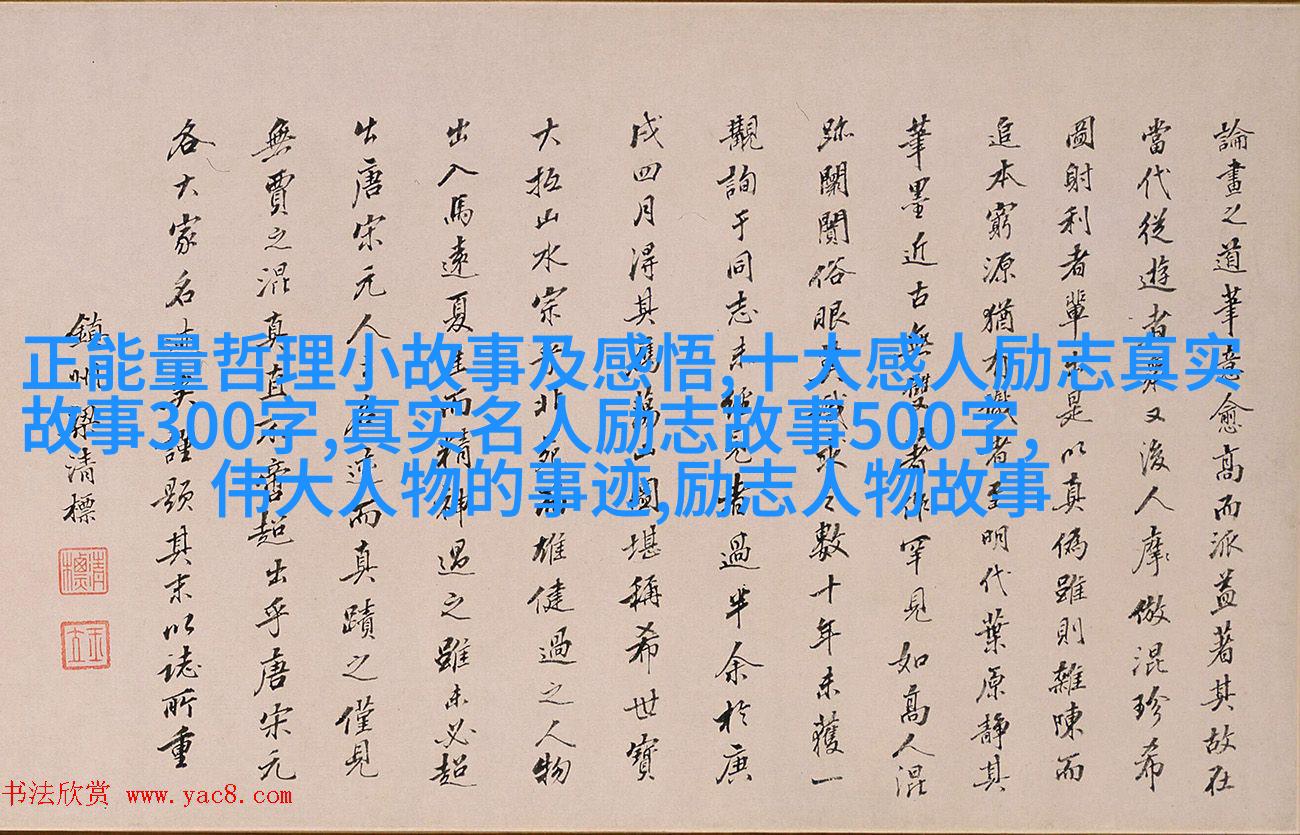 論畫之道筆意愈高而派益著其故在
當代從遊者
又後人摩倣混珍希
圖射利者輩
是以真偽雖則雜陳而
追本窮源猶有
者至明代葉原靜其
筆墨近古無雙
罕見如高人混
跡闤闠俗眼莫識
數十年未獲一
觀詢于同志未經見者過半余於庚
戌四月得其
山圖堪稱希世寶
大抵山水宗
雄健過之人物
出入馬遠夏
而精神過之雖未必超
出唐宋元人
而真蹟之僅見
無賈之混真直
超出乎唐宋元
各大家名
謹題其末以誌所重
鎮州梁清標
清標
正能量哲理小故事及感悟,十大感人励志真实
故事300字,真实名人励志故事500字,
伟大人物的事迹,励志人物故事
书法欣赏 www.yac8.com